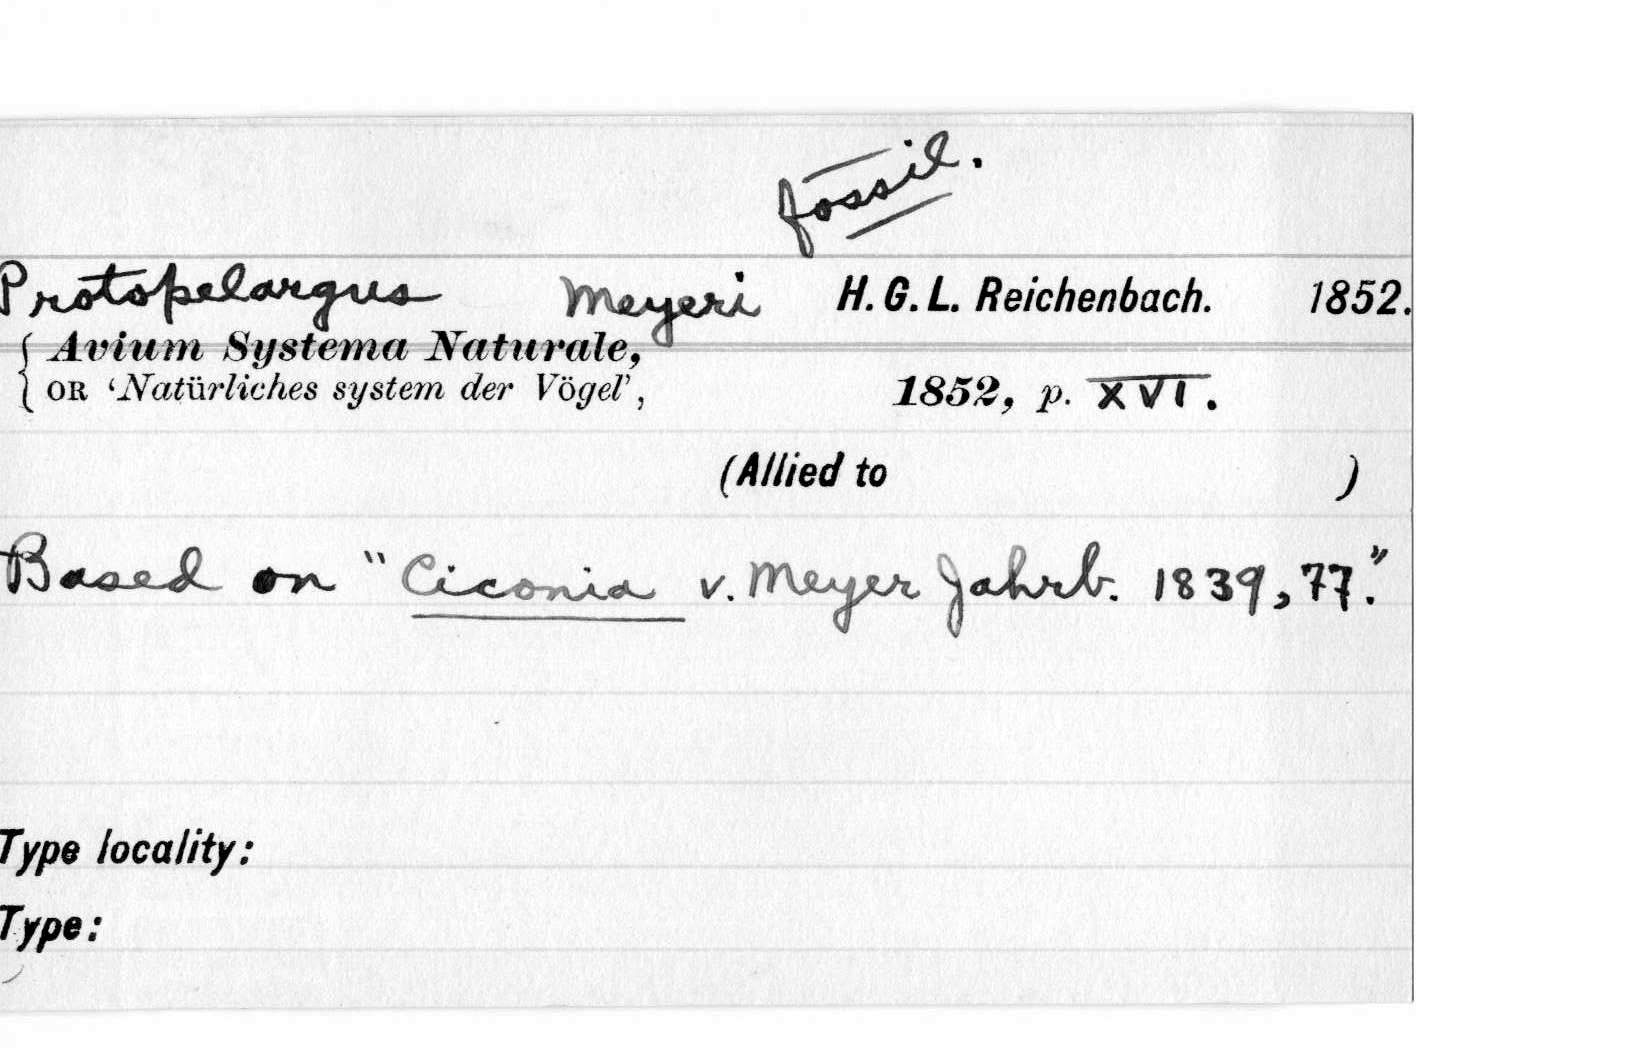 fossil.
Protopelargus Meyeri H. G. L. Reichenbach. 1852.
Avium Systema Naturale,
OR ‘Natürliches system der Vögel’, 1852, p. XVI.
(Allied to )
Based on "Ciconia v. Meyer Jahrb. 1839, 77."
Type locality:
Type: